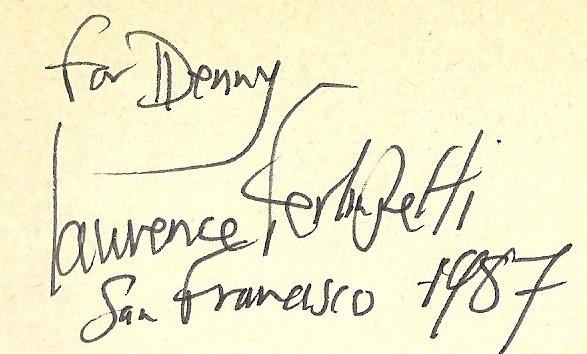 for Denny
Lawrence Ferlinghetti
San Francisco 1987